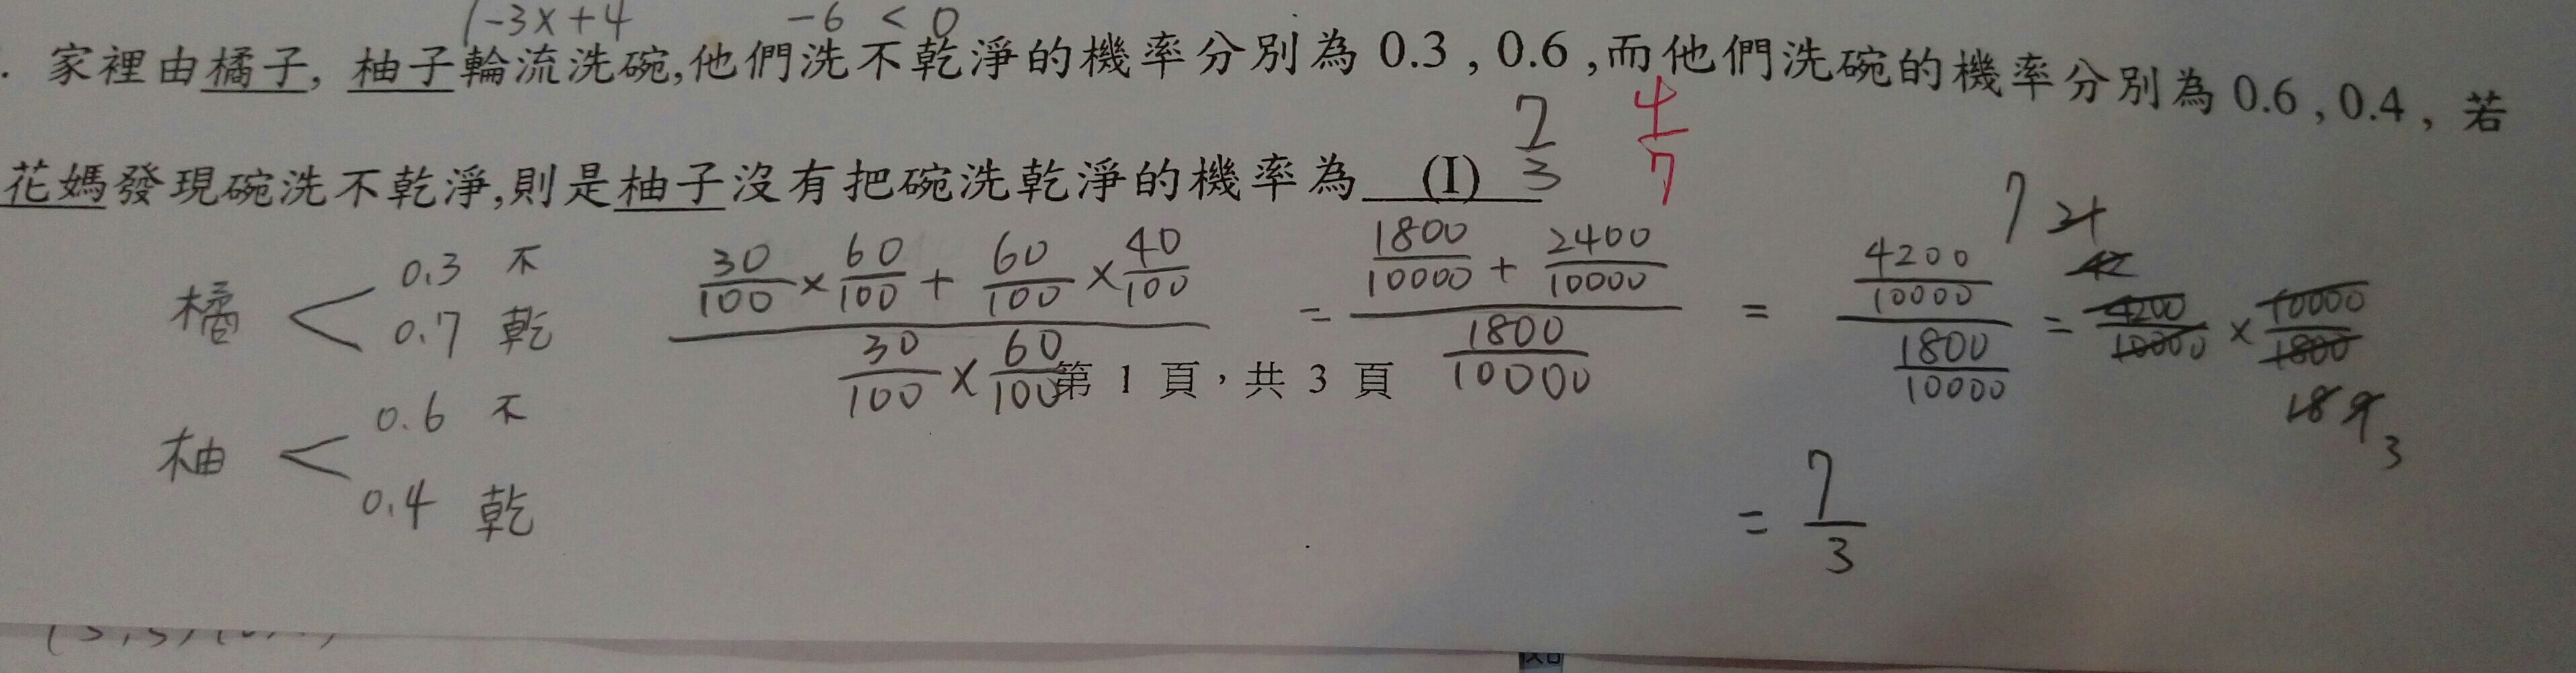 (-3x+4 -6 < 0
. 家裡由橘子, 柚子輪流洗碗,他們洗不乾淨的機率分別為 0.3 , 0.6 ,而他們洗碗的機率分別為 0.6 , 0.4 , 若
花媽發現碗洗不乾淨,則是柚子沒有把碗洗乾淨的機率為 (I) 7/3 4/7
橘 < 0.3 不
0.7 乾
柚 < 0.6 不
0.4 乾
30/100 × 60/100 + 60/100 × 40/100 = 1800/10000 + 2400/10000 = 4200/10000 = 4200/10000 × 10000/1800
30/100 × 60/100 1800/10000 1800/10000
7 21 42
18 9 3
第 1 頁，共 3 頁
= 7/3